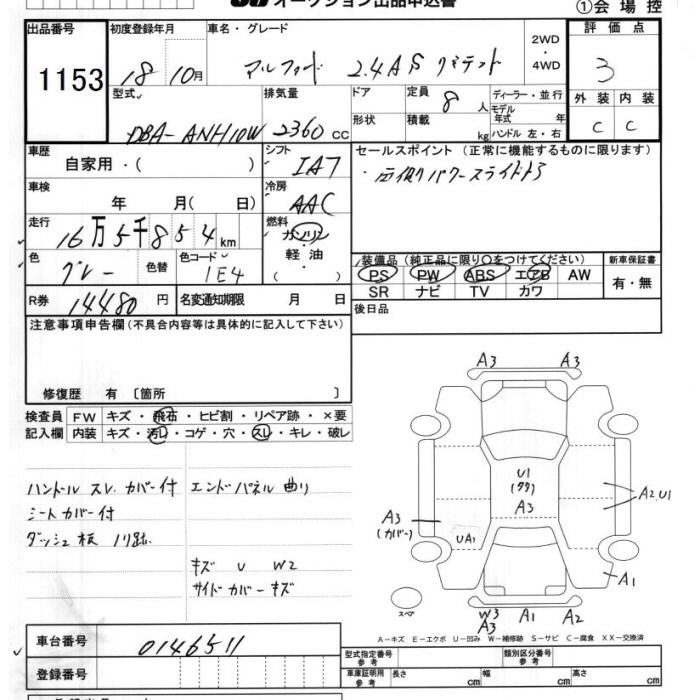 オークション出品申込書
①会場控
出品番号
1153
初度登録年月
18 10月
車名・グレード
アルファード 2.4AS リミテッド
2WD
・
4WD
評価点
3
外装 内装
C C
型式
DBA-ANH10W
排気量
2360 CC
ドア
形状
定員 8 人
積載 kg
ディーラー・並行
モデル
年式 年
ハンドル 左・右
車歴
自家用・( )
シフト
IAT
セールスポイント (正常に機能するものに限ります)
・両側パワースライドドア
車検
年 月( 日)
冷房
AAC
走行
16万5千854km
燃料
ガソリン
・
軽油
色
グレー
色替
色コード
1E4
装備品(純正品に限り○をつけてください)
PS PW ABS エアB AW
SR ナビ TV カワ
新車保証書
有・無
R券 14480 円
名変通知期限 月 日
後日品
注意事項申告欄(不具合内容等は具体的に記入して下さい)
修復歴 有 〔箇所 〕
検査員 FW キズ・飛石・ヒビ割・リペア跡・×要
記入欄 内装 キズ・汚レ・コゲ・穴・スレ・キレ・破レ
ハンドル スレ.カバー付
シートカバー付
ダッシュ板 ノリ跡.
エンドパネル曲り
キズ U W2
サイドカバーキズ
A3 A3
U1
A3
A2.U1
A3
(カバー)
UA1
A1
スペア
W3
A3
A1 A2
A-キズ E-エクボ U-凹み W-補修跡 S-サビ C-腐食 XX-交換済
車台番号
0146511
登録番号
型式指定番号
参考
類別区分番号
参考
車庫証明用
参考
長さ cm
幅 cm
高さ cm